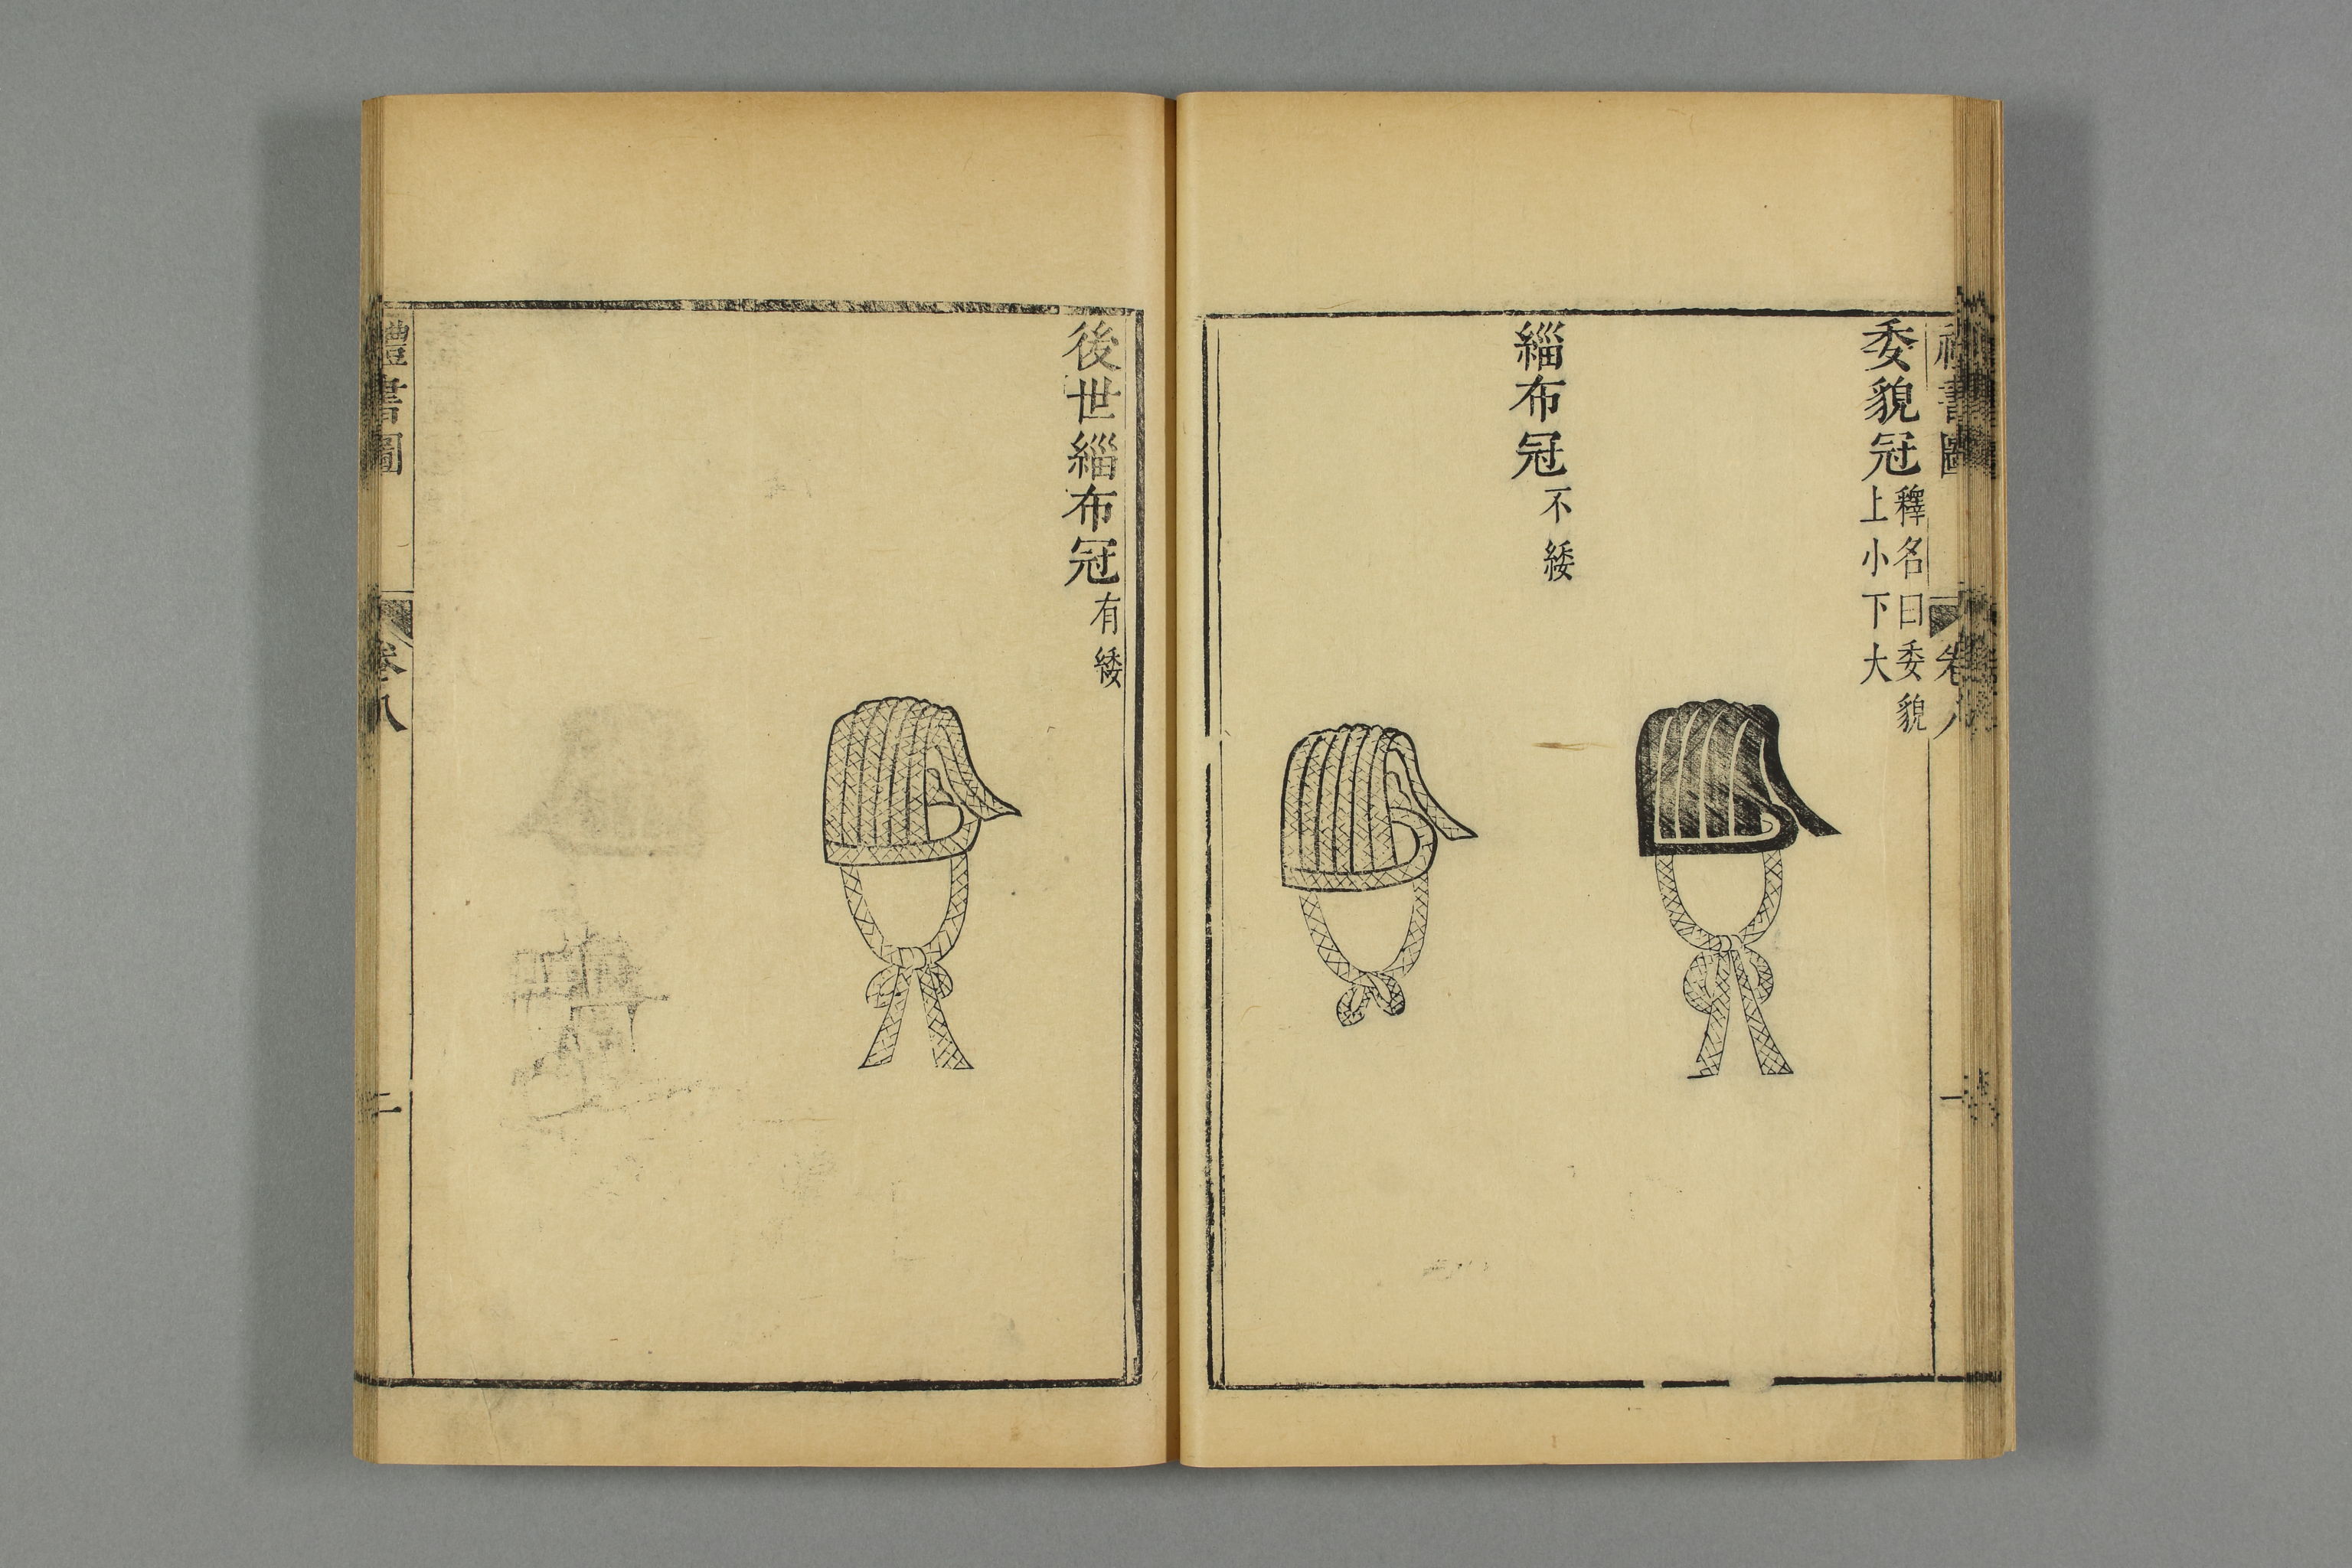 禮書圖 卷八 一
委貌冠 釋名曰委貌
上小下大
緇布冠 不緌
後世緇布冠 有緌
禮書圖 卷八 二